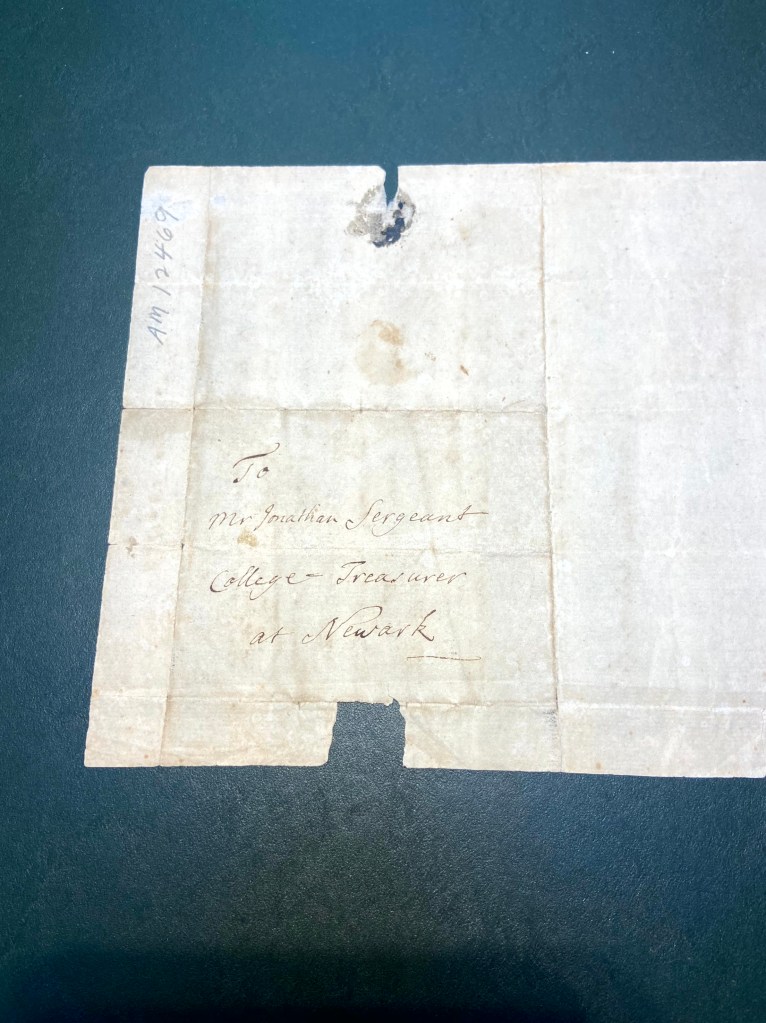 AM 12469
To
Mr Jonathan Sergeant
College - Treasurer
at Newark